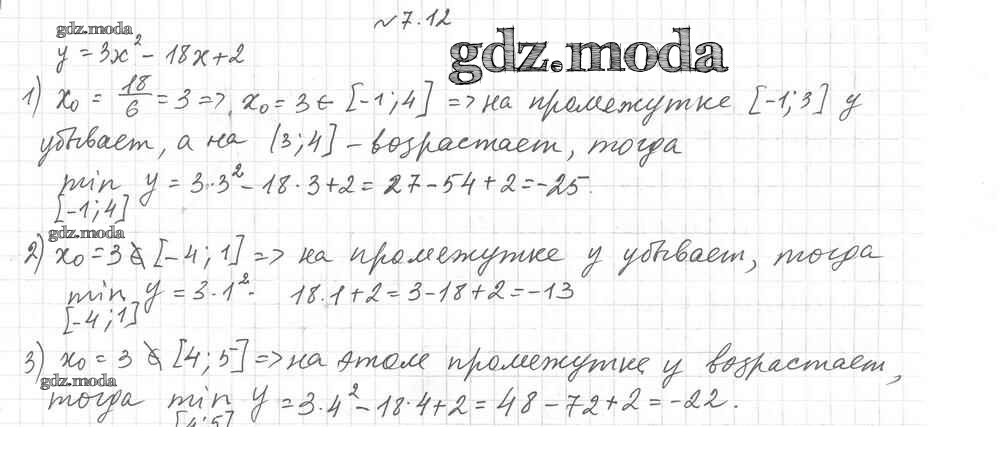 №7.12
gdz.moda
gdz.moda
y = 3x² - 18x + 2
1) x₀ = 18/6 = 3 => x₀ = 3 ∈ [-1; 4] => на промежутке [-1; 3] y
убывает, а на (3; 4] - возрастает, тогда
min y = 3·3² - 18·3 + 2 = 27 - 54 + 2 = -25.
[-1; 4]
gdz.moda
2) x₀ = 3 ∉ [-4; 1] => на промежутке y убывает, тогда
min y = 3·1² - 18·1 + 2 = 3 - 18 + 2 = -13
[-4; 1]
3) x₀ = 3 ∉ [4; 5] => на этом промежутке y возрастает,
gdz.moda
тогда min y = 3·4² - 18·4 + 2 = 48 - 72 + 2 = -22.
[4; 5]